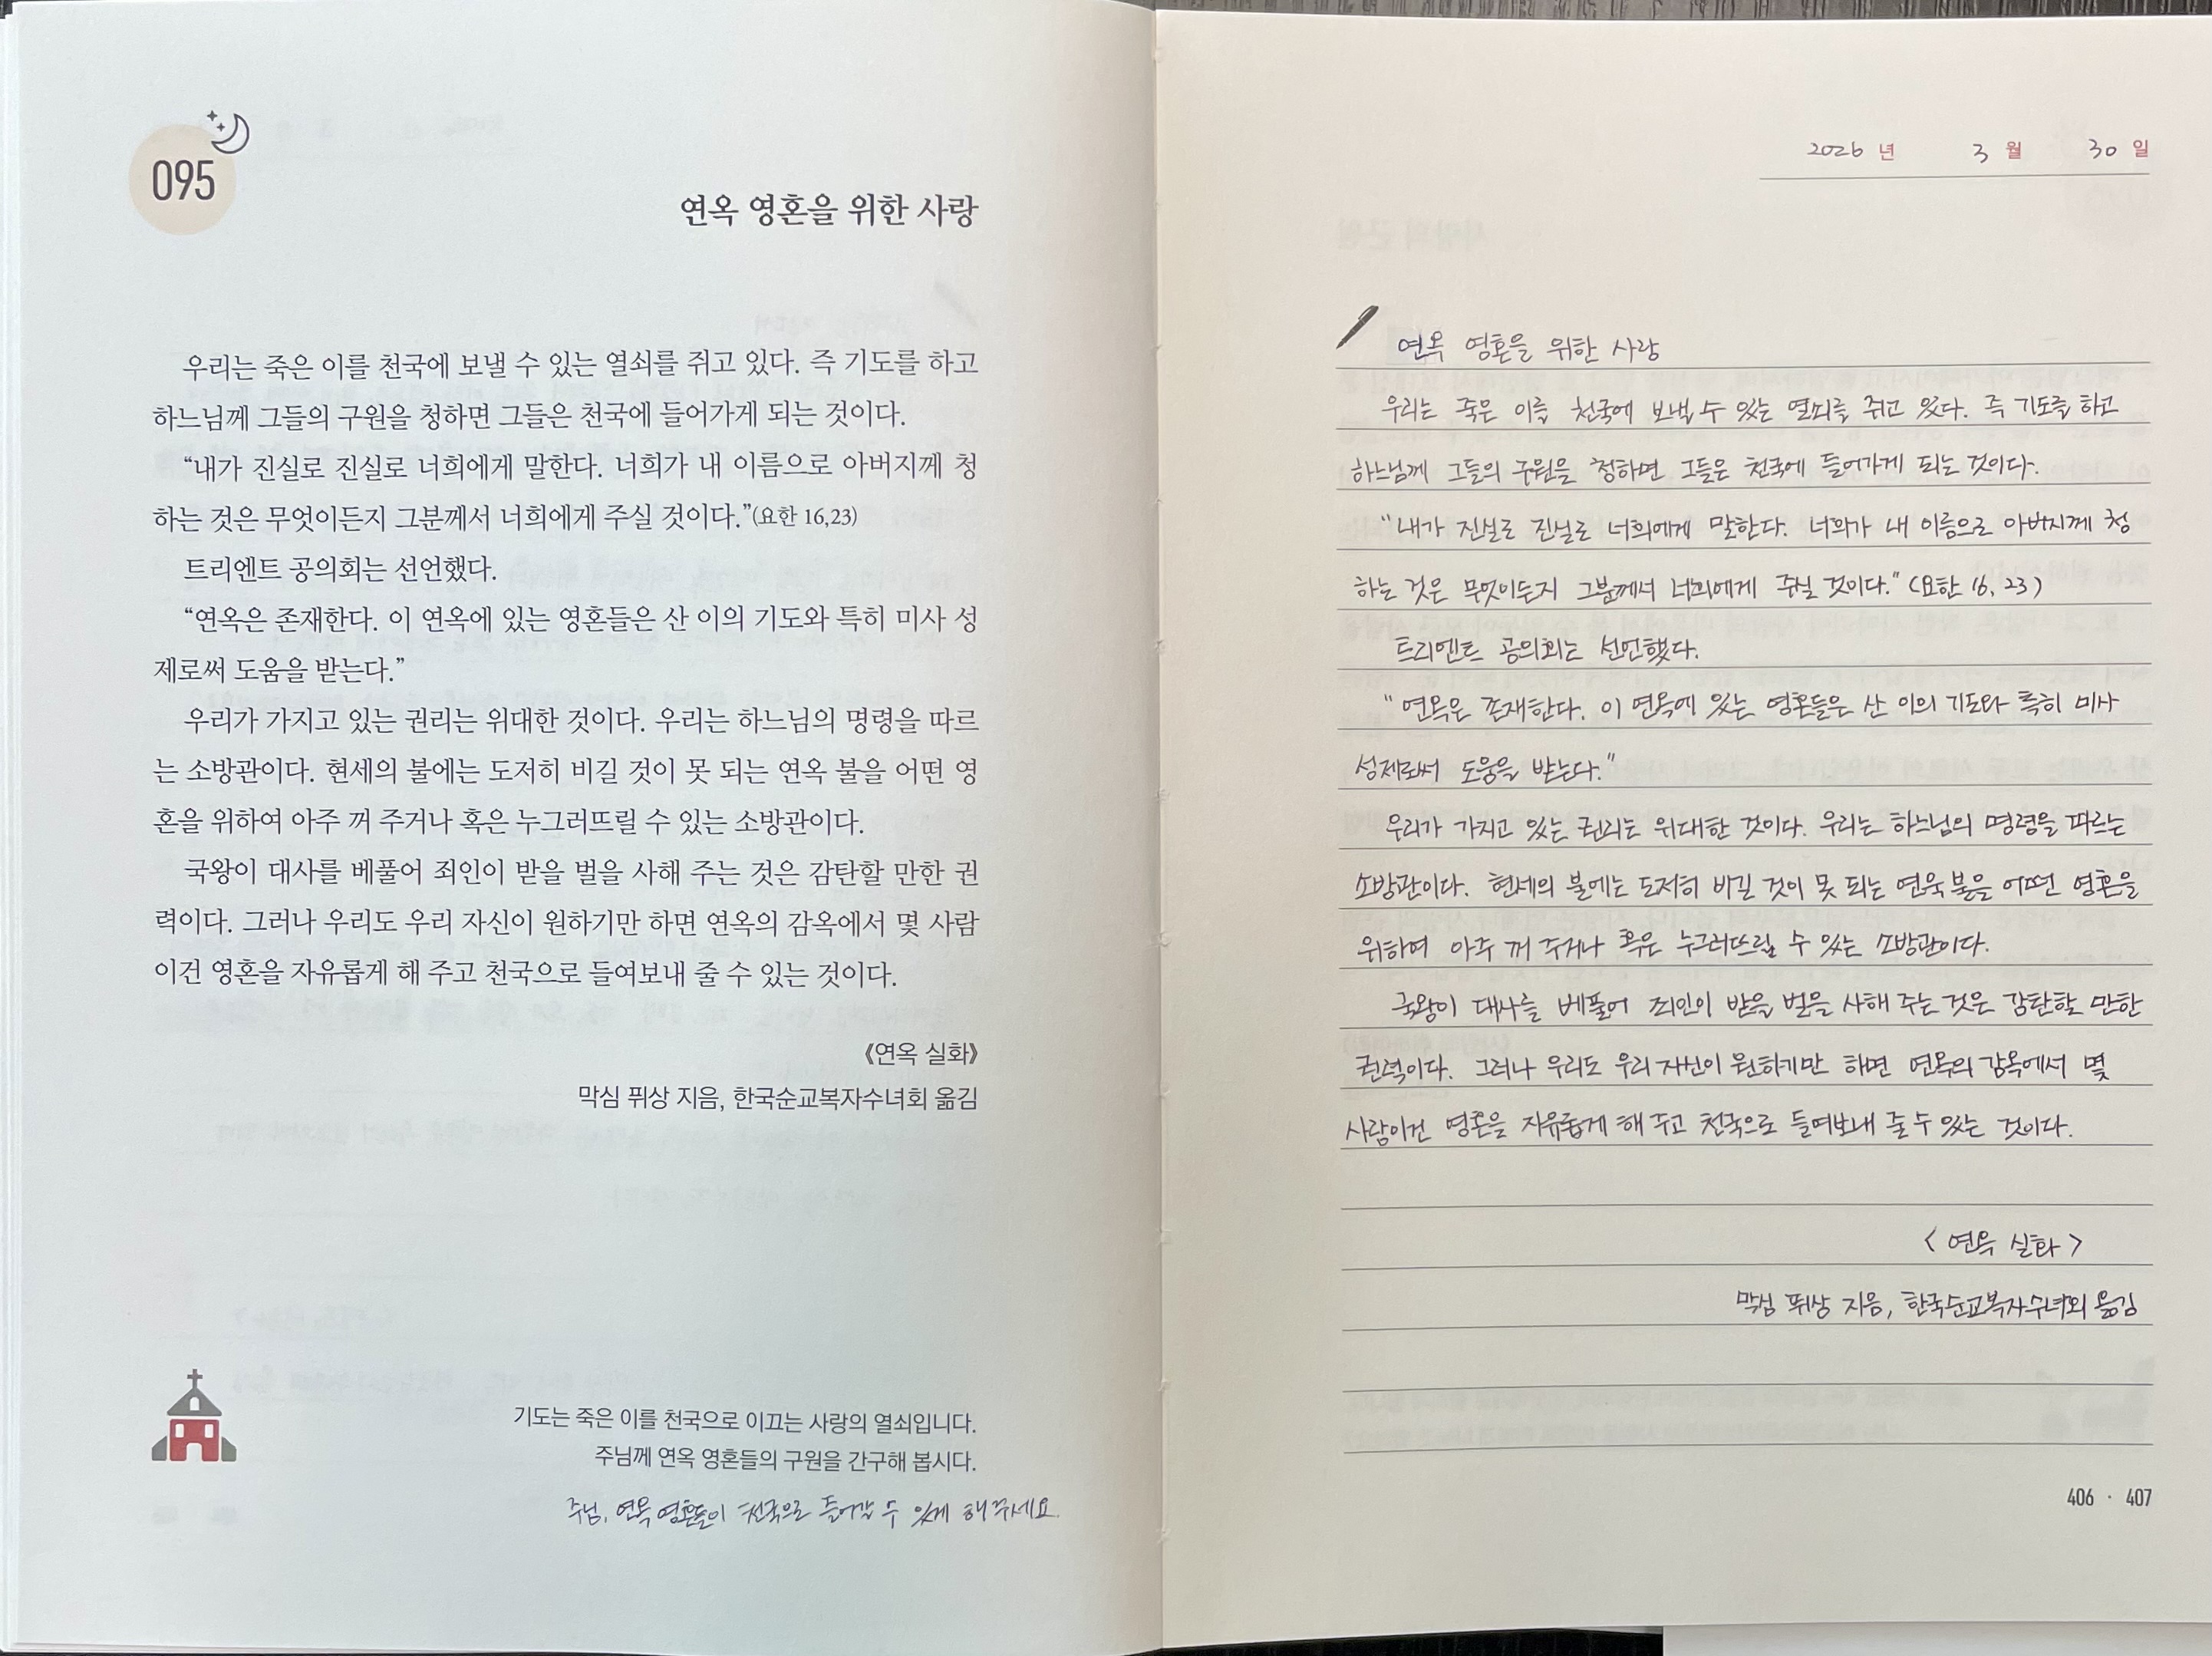 095
연옥 영혼을 위한 사랑
우리는 죽은 이를 천국에 보낼 수 있는 열쇠를 쥐고 있다. 즉 기도를 하고
하느님께 그들의 구원을 청하면 그들은 천국에 들어가게 되는 것이다.
“내가 진실로 진실로 너희에게 말한다. 너희가 내 이름으로 아버지께 청
하는 것은 무엇이든지 그분께서 너희에게 주실 것이다.”(요한 16,23)
트리엔트 공의회는 선언했다.
“연옥은 존재한다. 이 연옥에 있는 영혼들은 산 이의 기도와 특히 미사 성
제로써 도움을 받는다.”
우리가 가지고 있는 권리는 위대한 것이다. 우리는 하느님의 명령을 따르
는 소방관이다. 현세의 불에는 도저히 비길 것이 못 되는 연옥 불을 어떤 영
혼을 위하여 아주 꺼 주거나 혹은 누그러뜨릴 수 있는 소방관이다.
국왕이 대사를 베풀어 죄인이 받을 벌을 사해 주는 것은 감탄할 만한 권
력이다. 그러나 우리도 우리 자신이 원하기만 하면 연옥의 감옥에서 몇 사람
이건 영혼을 자유롭게 해 주고 천국으로 들여보내 줄 수 있는 것이다.
《연옥 실화》
막심 퓌상 지음, 한국순교복자수녀회 옮김
기도는 죽은 이를 천국으로 이끄는 사랑의 열쇠입니다.
주님께 연옥 영혼들의 구원을 간구해 봅시다.
주님, 연옥 영혼들이 천국으로 들어갈 수 있게 해주세요.
2026 년 3 월 30 일
연옥 영혼을 위한 사랑
우리는 죽은 이를 천국에 보낼 수 있는 열쇠를 쥐고 있다. 즉 기도를 하고
하느님께 그들의 구원을 청하면 그들은 천국에 들어가게 되는 것이다.
"내가 진실로 진실로 너희에게 말한다. 너희가 내 이름으로 아버지께 청
하는 것은 무엇이든지 그분께서 너희에게 주실 것이다." (요한 16, 23)
트리엔트 공의회는 선언했다.
"연옥은 존재한다. 이 연옥에 있는 영혼들은 산 이의 기도와 특히 미사
성제로써 도움을 받는다."
우리가 가지고 있는 권리는 위대한 것이다. 우리는 하느님의 명령을 따르는
소방관이다. 현세의 불에는 도저히 비길 것이 못 되는 연옥 불을 어떤 영혼을
위하여 아주 꺼 주거나 혹은 누그러뜨릴 수 있는 소방관이다.
국왕이 대사를 베풀어 죄인이 받을 벌을 사해 주는 것은 감탄할 만한
권력이다. 그러나 우리도 우리 자신이 원하기만 하면 연옥의 감옥에서 몇
사람이건 영혼을 자유롭게 해 주고 천국으로 들여보내 줄 수 있는 것이다.
< 연옥 실화 >
막심 퓌상 지음, 한국순교복자수녀회 옮김
406 · 407